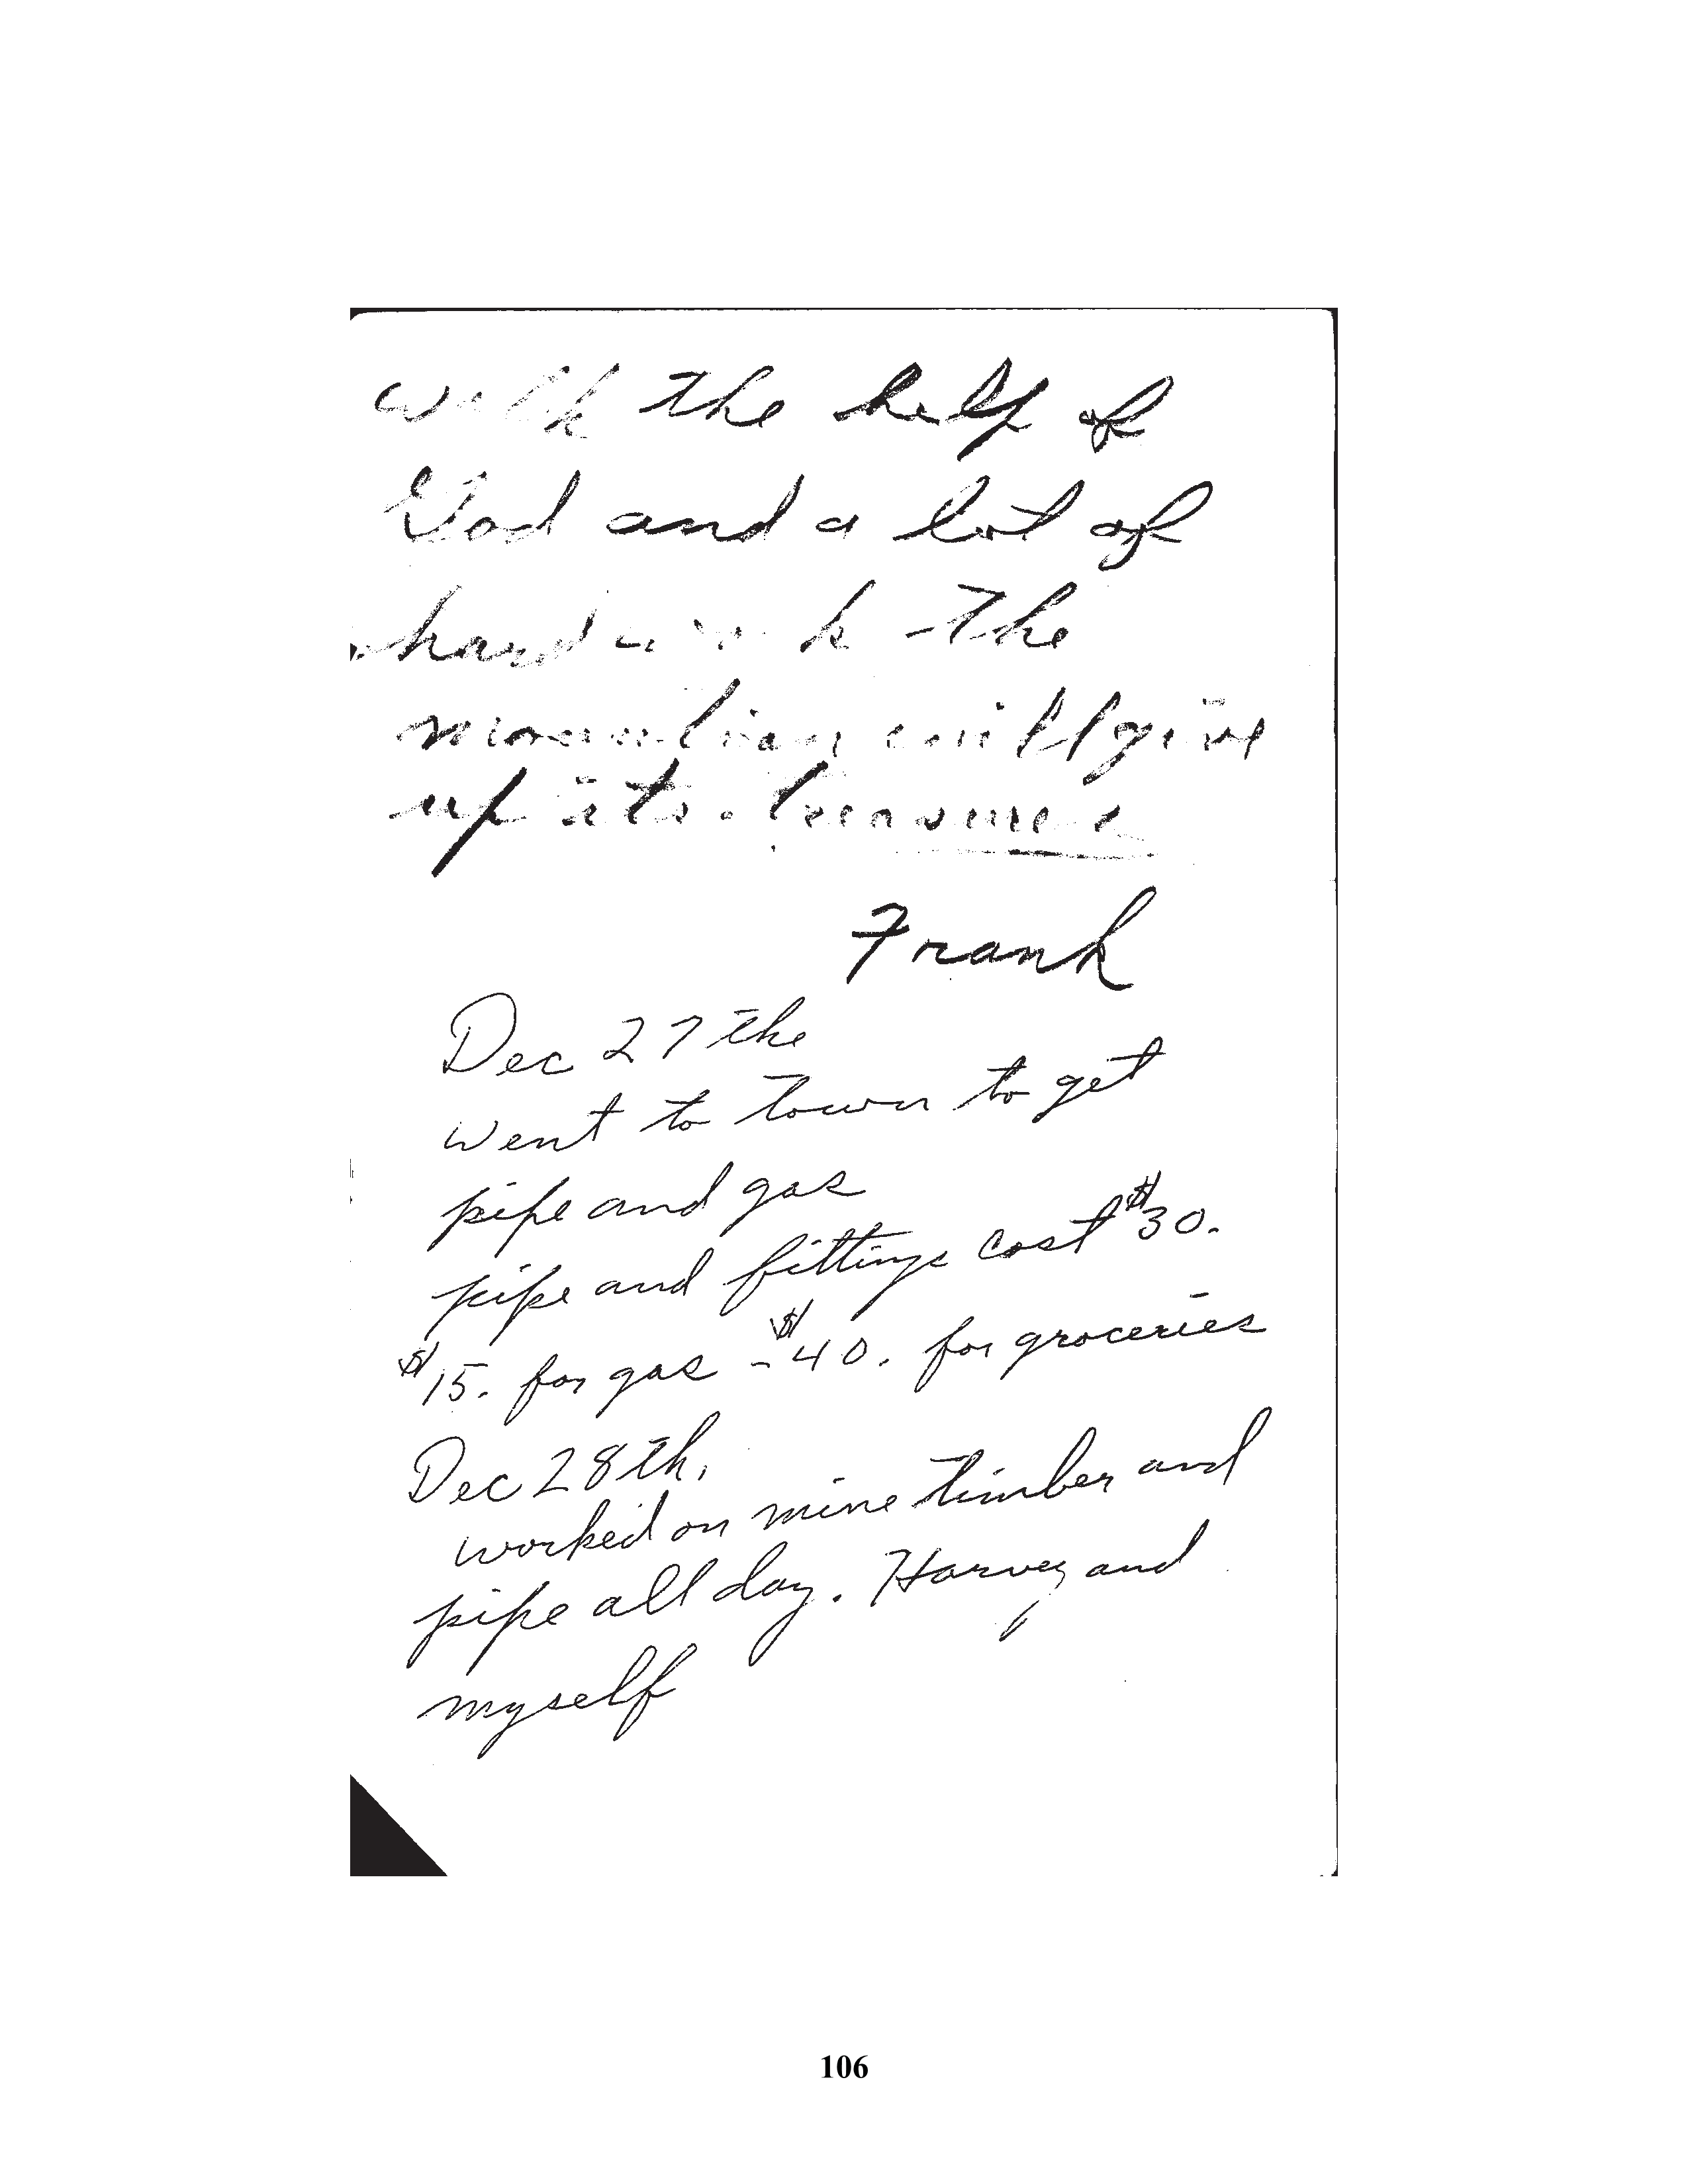 with the help of
God and a lot of
hard work the
mountian will give
up its. treasure
Frank
Dec 27 the
went to town to get
pipe and gas
pipe and fittings cost $30.
$15. for gas - $40. for groceries
Dec 28th.
worked on mine timber and
pipe all day. Harvey and
myself
106